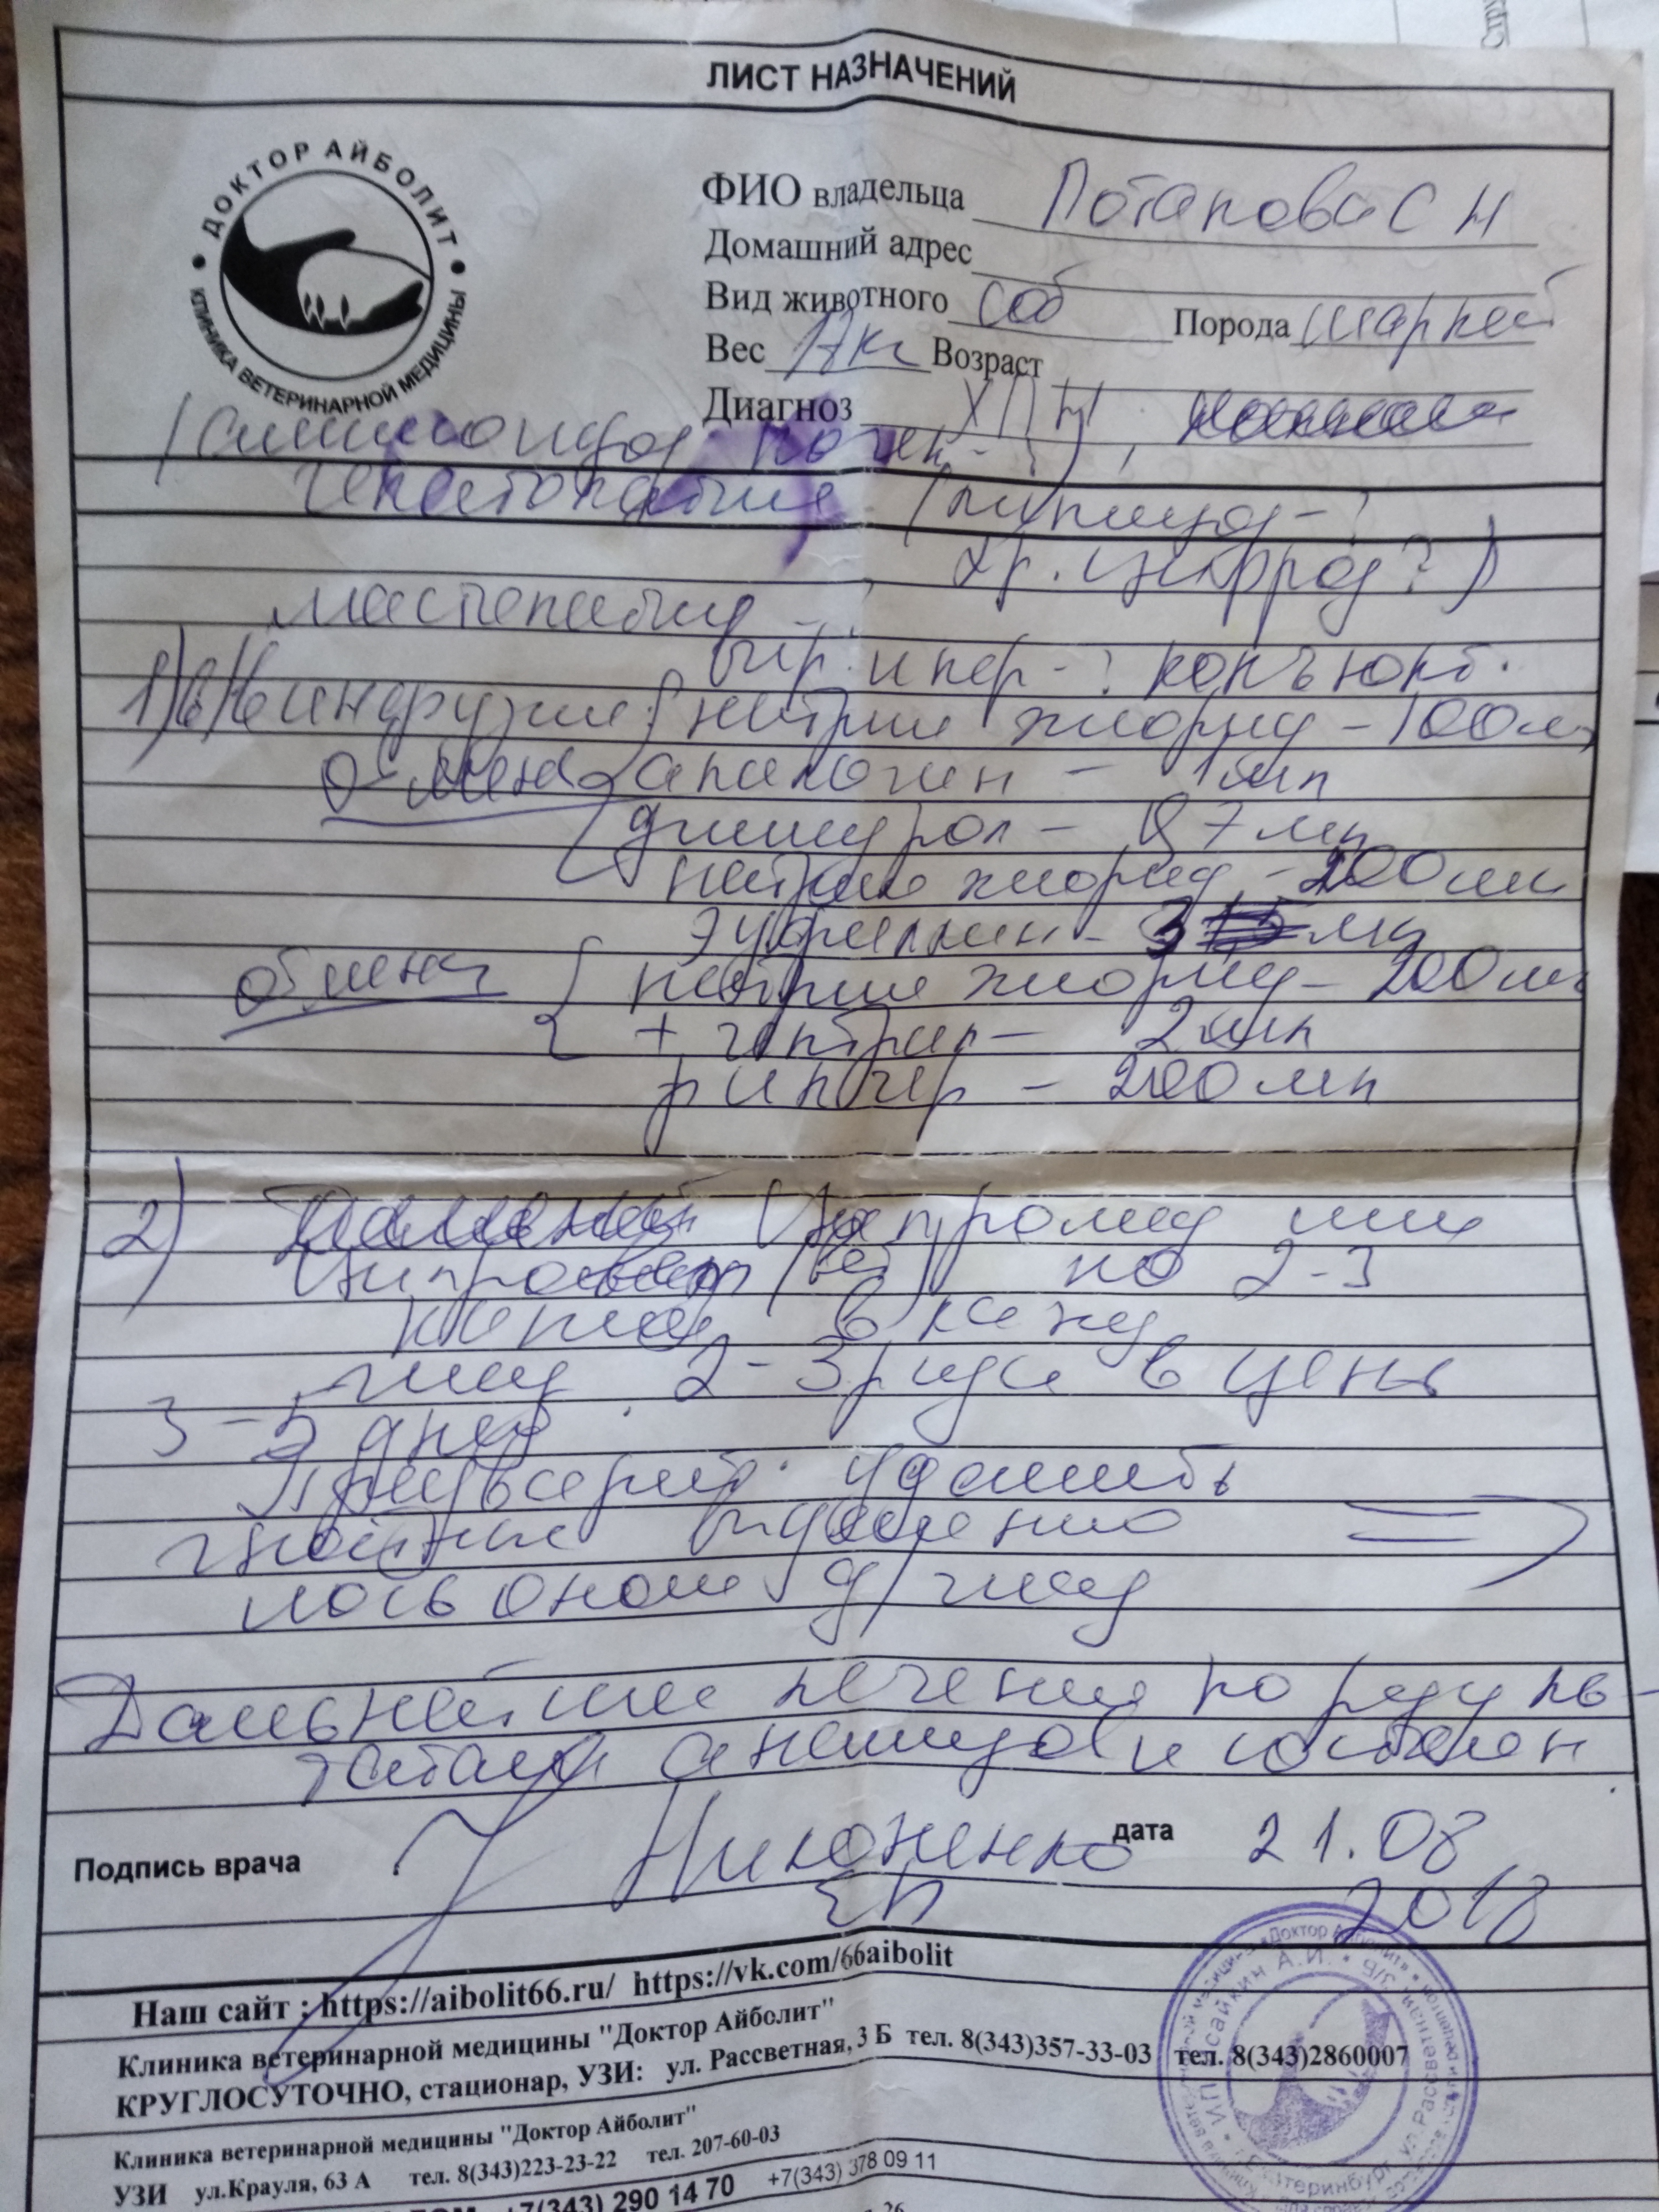 ЛИСТ НАЗНАЧЕНИЙ
ДОКТОР АЙБОЛИТ
КЛИНИКА ВЕТЕРИНАРНОЙ МЕДИЦИНЫ
ФИО владельца Потапова С Н
Домашний адрес
Вид животного соб Порода шарпей
Вес кг Возраст
Диагноз ХПН,
(амилоидоз почек-?),
гепатопатия (липидоз-?
хр. гепат?)
мастопатия
конъюкт.
1) в/в инфузии: { натрия хлорид - 100мл
отмена анальгин - 1мл
димедрол - 0,7мл
натрия хлорид - 200мл
Эуфиллин - 3 мл
отмена { натрия хлорид - 200мл
+ гептрал - 2мл
рингер - 200мл
2) Ципромед или
Ципровет (вет) по 2-3
капли в кажд
глаз 2-3 раза в день
3-5 дней.
Предварит. удалить
гнойные выделения =>
лосьоном д/глаз
Дальнейшее лечение по резуль-
татам анализов и состоян
Подпись врача Никоненко дата 21.08
2018
Наш сайт : https://aibolit66.ru/ https://vk.com/66aibolit
Клиника ветеринарной медицины "Доктор Айболит"
КРУГЛОСУТОЧНО, стационар, УЗИ: ул. Рассветная, 3 Б тел. 8(343)357-33-03 тел. 8(343)2860007
Клиника ветеринарной медицины "Доктор Айболит"
УЗИ ул.Крауля, 63 А тел. 8(343)223-23-22 тел. 207-60-03
+7(343) 290 14 70 +7(343) 378 09 11